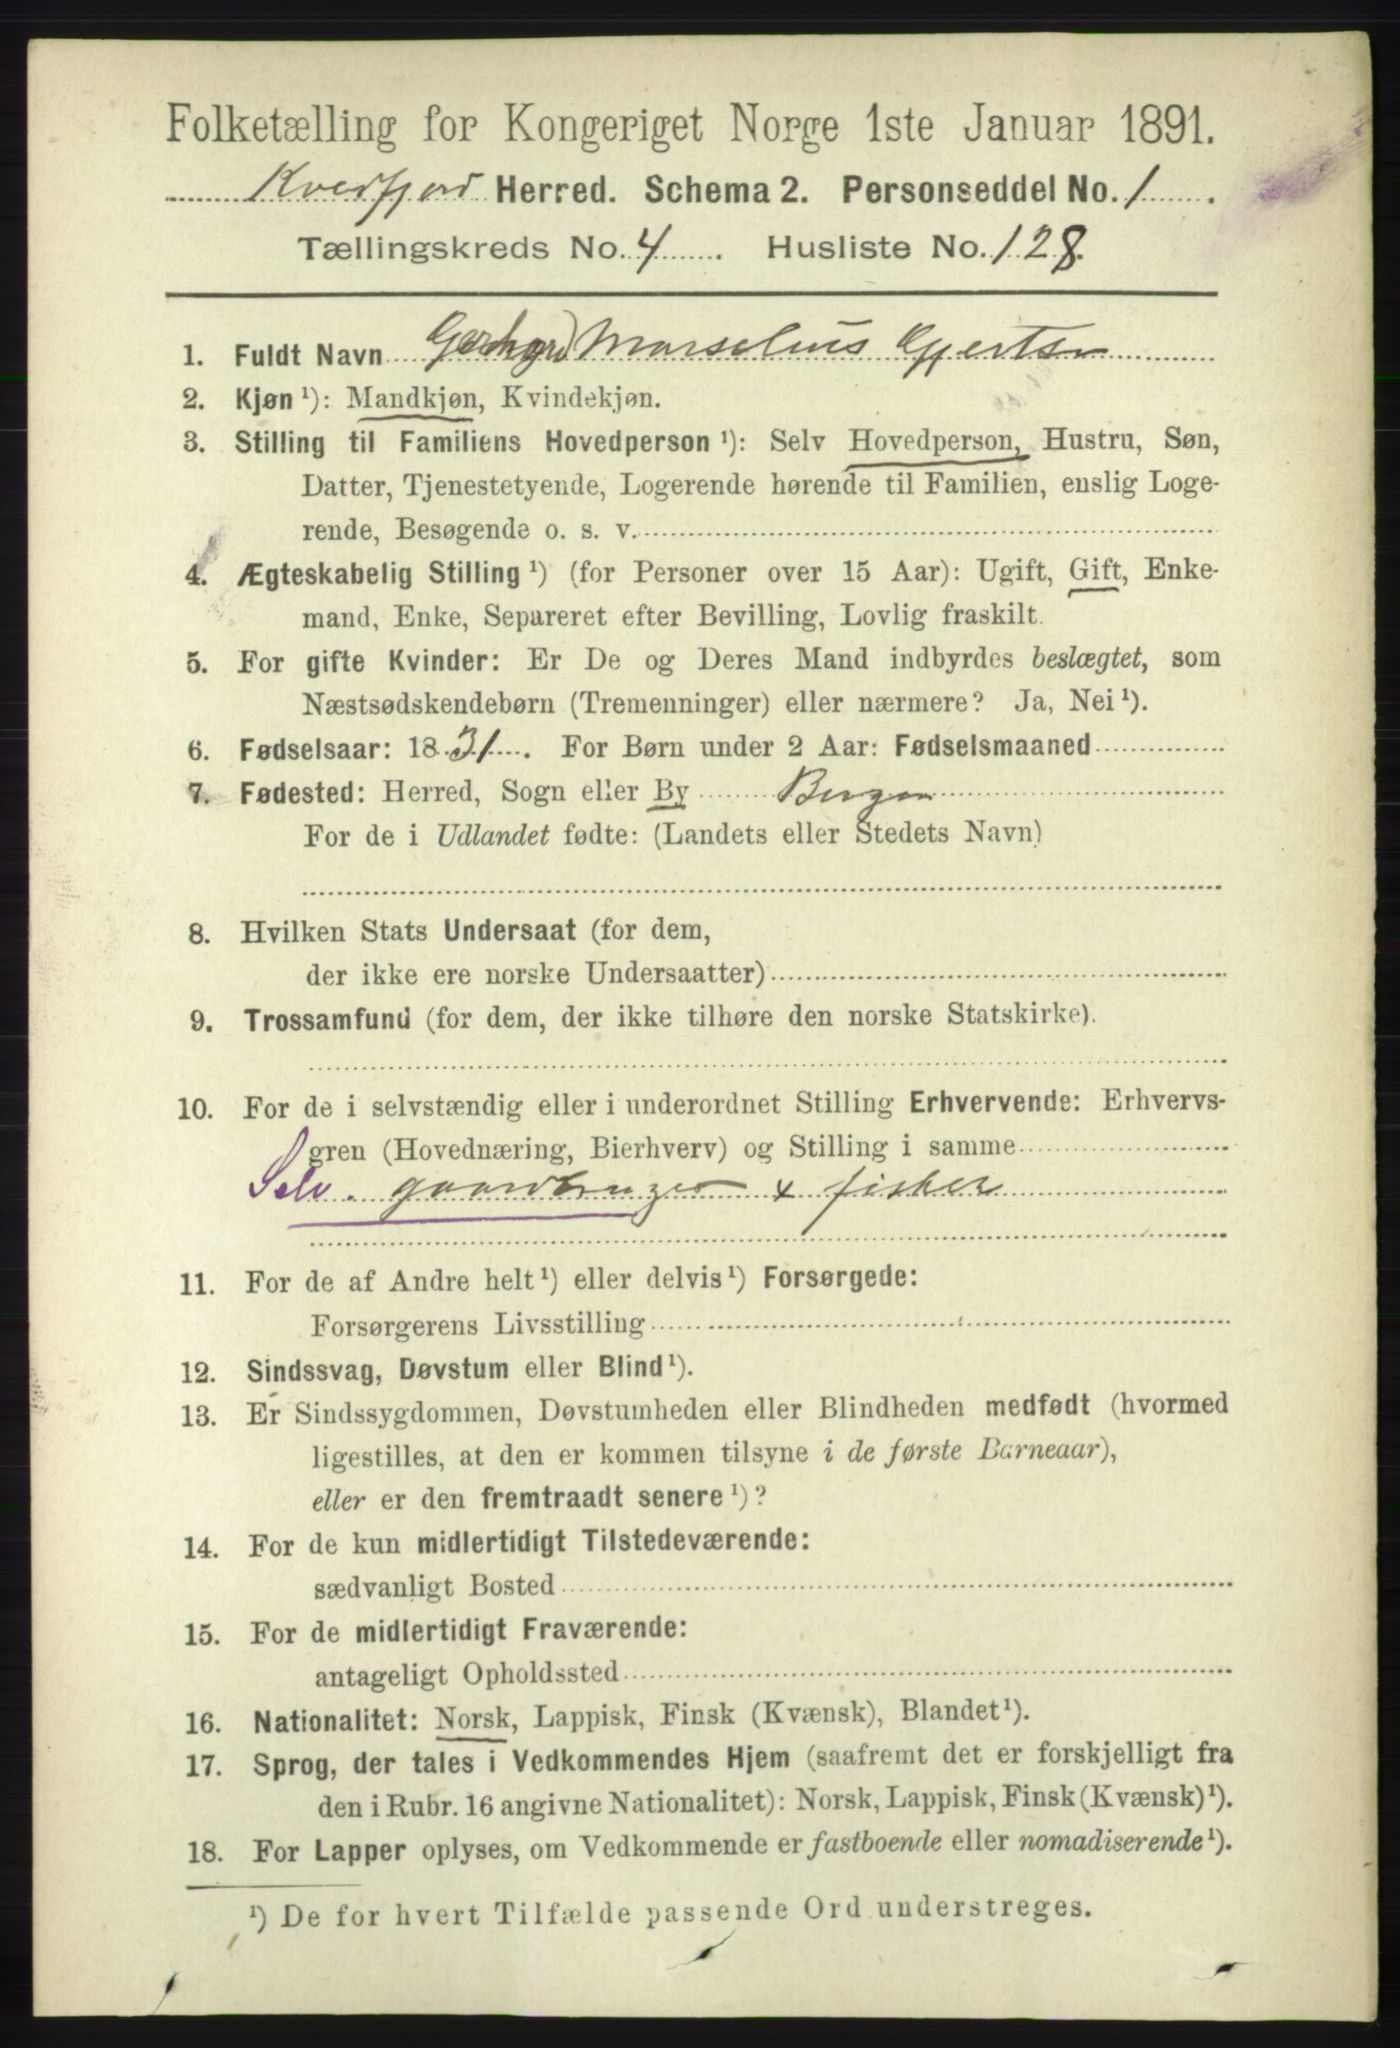 Folketælling for Kongeriget Norge 1ste Januar 1891.
Kvedfjord Herred. Schema 2. Personseddel No. 1.
Tællingskreds No. 4. Husliste No. 128.
1. Fuldt Navn Gerhard Marselius Gjertsen
2. Kjøn ¹): Mandkjøn, Kvindekjøn.
3. Stilling til Familiens Hovedperson ¹): Selv Hovedperson, Hustru, Søn,
Datter, Tjenestetyende, Logerende hørende til Familien, enslig Loge-
rende, Besøgende o. s. v.
4. Ægteskabelig Stilling ¹) (for Personer over 15 Aar): Ugift, Gift, Enke-
mand, Enke, Separeret efter Bevilling, Lovlig fraskilt.
5. For gifte Kvinder: Er De og Deres Mand indbyrdes beslægtet, som
Næstsødskendebørn (Tremenninger) eller nærmere? Ja, Nei ¹).
6. Fødselsaar: 1831. For Børn under 2 Aar: Fødselsmaaned
7. Fødested: Herred, Sogn eller By Bergen
For de i Udlandet fødte: (Landets eller Stedets Navn)
8. Hvilken Stats Undersaat (for dem,
der ikke ere norske Undersaatter)
9. Trossamfund (for dem, der ikke tilhøre den norske Statskirke).
10. For de i selvstændig eller i underordnet Stilling Erhvervende: Erhvervs-
gren (Hovednæring, Bierhverv) og Stilling i samme
Selv. gaardbruger + fisker
11. For de af Andre helt ¹) eller delvis ¹) Forsørgede:
Forsørgerens Livsstilling
12. Sindssvag, Døvstum eller Blind ¹).
13. Er Sindssygdommen, Døvstumheden eller Blindheden medfødt (hvormed
ligestilles, at den er kommen tilsyne i de første Barneaar),
eller er den fremtraadt senere ¹)?
14. For de kun midlertidigt Tilstedeværende:
sædvanligt Bosted
15. For de midlertidigt Fraværende:
antageligt Opholdssted
16. Nationalitet: Norsk, Lappisk, Finsk (Kvænsk), Blandet ¹).
17. Sprog, der tales i Vedkommendes Hjem (saafremt det er forskjelligt fra
den i Rubr. 16 angivne Nationalitet): Norsk, Lappisk, Finsk (Kvænsk) ¹).
18. For Lapper oplyses, om Vedkommende er fastboende eller nomadiserende ¹).
¹) De for hvert Tilfælde passende Ord understreges.